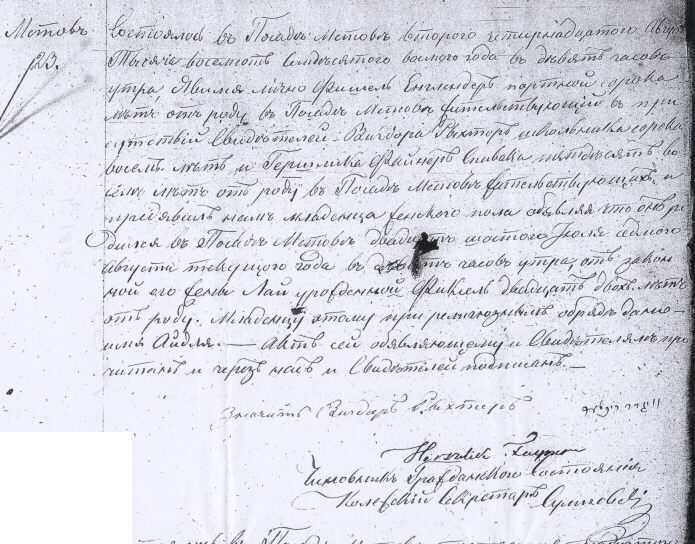 Мстовъ
23.
Состоялось въ Посадѣ Мстовѣ второго четырнадцатого Августа
Тысяча восемсотъ семдѣсятого восмого года въ девять часовъ
утра, Явился лично Фишель Енглендеръ портной сорока
лѣтъ отъ роду въ Посадѣ Мстовѣ жительствующій въ при
сутствіи Свидѣтелей Вигдора Рыхтеръ школьника сорока
восемь лѣтъ и Гершлика Файнеръ Спивака пятдѣсятъ во
семь лѣтъ отъ роду въ Посадѣ Мстовѣ жительствующихъ, и
предъявилъ намъ младенца женского пола объявляя что онъ ро
дился въ Посадѣ Мстовѣ двадцать шостого Іюля седмого
Августа текущого года въ часовъ утра, отъ закон
ной его жены Лаи урожденной Фиксель двадцать двохъ лѣтъ
отъ роду. Младенцу этому при религіозныхъ обрядѣ дано
имя Айдля. — Актъ сей объявляющему и Свидѣтелямъ про
читанъ и черезъ насъ и Свидѣтелей подписанъ. —
Значитъ Вигдоръ Рыхтеръ
Чиновникъ Гражданского Состоянія
Колежскій Секретаръ